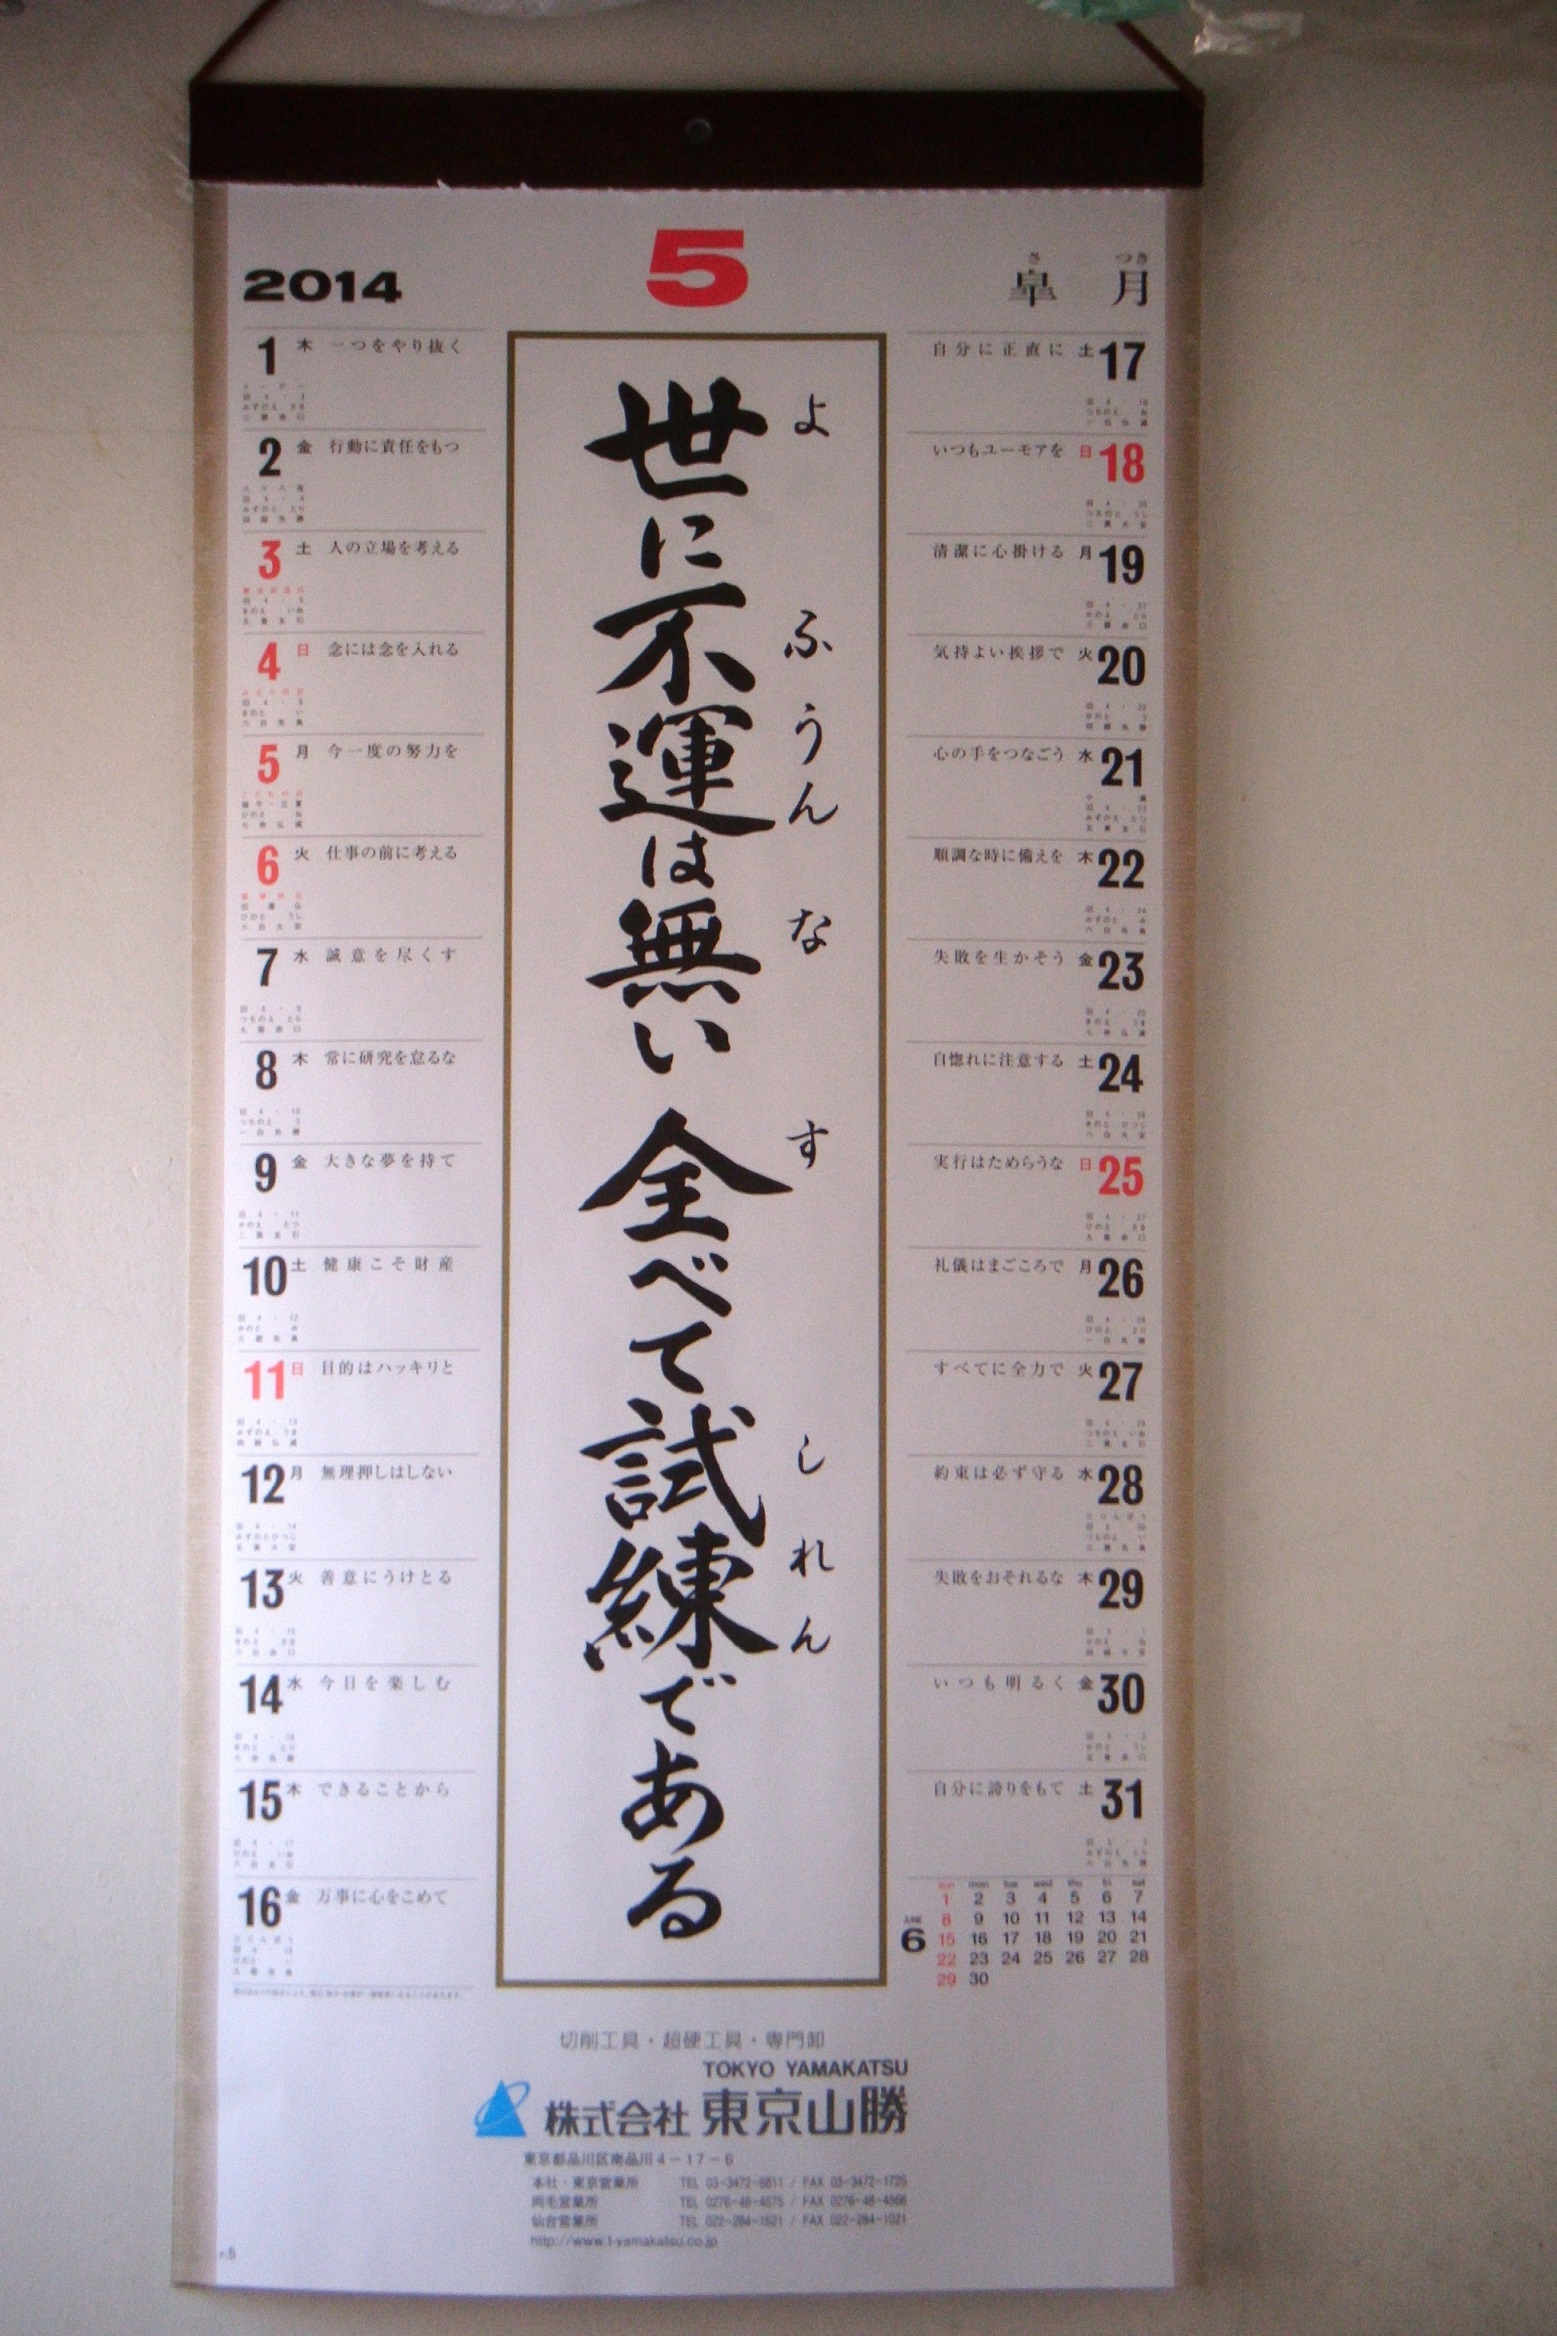 2014
5
さ つき
皐 月
世に不運は無い 全べて試練である
よ ふうん な す しれん
1 木 一つをやり抜く
2 金 行動に責任をもつ
3 土 人の立場を考える
4 日 念には念を入れる
5 月 今一度の努力を
こどもの日
6 火 仕事の前に考える
7 水 誠意を尽くす
8 木 常に研究を怠るな
9 金 大きな夢を持て
10 土 健康こそ財産
11 日 目的はハッキリと
12 月 無理押しはしない
13 火 善意にうけとる
14 水 今日を楽しむ
15 木 できることから
16 金 万事に心をこめて
自分に正直に 土 17
いつもユーモアを 日 18
清潔に心掛ける 月 19
気持よい挨拶で 火 20
心の手をつなごう 水 21
順調な時に備えを 木 22
失敗を生かそう 金 23
自惚れに注意する 土 24
実行はためらうな 日 25
礼儀はまごころで 月 26
すべてに全力で 火 27
約束は必ず守る 水 28
失敗をおそれるな 木 29
いつも明るく 金 30
自分に誇りをもて 土 31
JUNE
6
sun mon tue wed thu fri sat
1 2 3 4 5 6 7
8 9 10 11 12 13 14
15 16 17 18 19 20 21
22 23 24 25 26 27 28
29 30
切削工具・超硬工具・専門卸
TOKYO YAMAKATSU
株式会社 東京山勝
東京都品川区南品川4-17-6
本社・東京営業所 TEL 03-3472-6811 / FAX 03-3472-1725
両毛営業所 TEL 0276-48-4575 / FAX 0276-48-4566
仙台営業所 TEL 022-284-1521 / FAX 022-284-1021
http://www.t-yamakatsu.co.jp